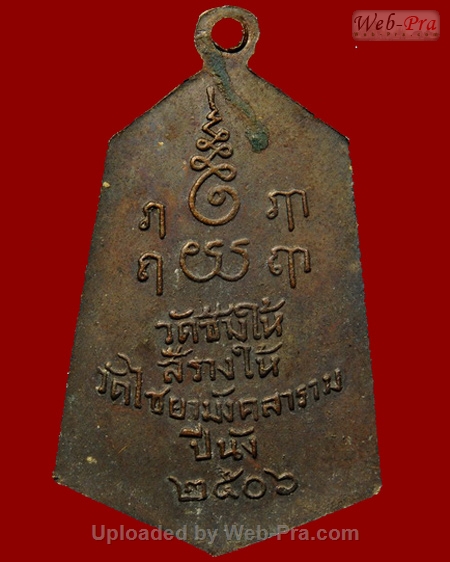 Web-Pra
Web-Pra.com
ภ ภา
ฤ ฤา
วัดช้างให้
สร้างให้
วัดไชยามังคลาราม
ปีนัง
๒๕๐๖
Uploaded by Web-Pra.com